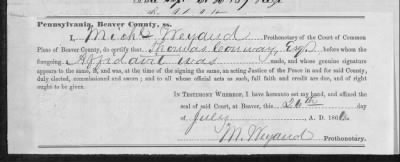 Pennsylvania, Beaver County, ss.
I, Mich. Weyand Prothonotary of the Court of Common
Pleas of Beaver County, do certify that Thomas Conway, Esq before whom the
foregoing Affidavit was made, and whose genuine signature
appears to the same, is, and was, at the time of the signing the same, an acting Justice of the Peace in and for said County,
duly elected, commissioned and sworn; and to all whose official acts as such, full faith and credit are due, and of right
ought to be given.
IN TESTIMONY WHEREOF, I have hereunto set my hand, and affixed
the seal of said Court, at Beaver, this 26th day
of July A. D. 186
M. Weyand Prothonotary.